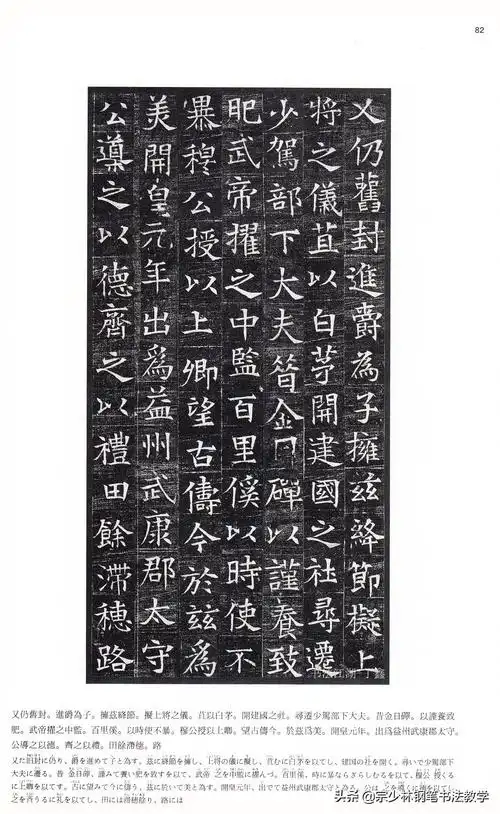 82
又仍舊封進爵為子擁茲絳節擬上
將之儀苴以白茅開建國之社尋遷
少駕部下大夫昝金日磾以謹養致
肥武帝擢之中監百里傒以時使不
暴穆公授以上卿望古儔今於茲為
美開皇元年出為益州武康郡太守
公導之以德齊之以禮田餘滯穗路
又仍舊封。進爵為子。擁茲絳節。擬上將之儀。苴以白茅。開建國之社。尋遷少駕部下大夫。昔金日磾。以謹養致
肥。武帝擢之中監。百里傒。以時使不暴。穆公授以上卿。望古儔今。於茲為美。開皇元年。出為益州武康郡太守。
公導之以德。齊之以禮。田餘滯穗。路
又た旧封に仍り、爵を進めて子と為す。茲に絳節を擁し、上将の儀に擬し、苴むに白茅を以てし、建国の社を開く。尋いで少駕部下
大夫に遷る。昔 金日磾、謹みて養い肥を致すを以て、武帝 之を中監に擢んづ。百里傒、時に暴ならざらしむるを以て、穆公 授くる
に上卿を以てす。古に望みて今に儔う、茲に於いて美と為す。開皇元年、出でて益州武康郡太守と為る。公は 之を導くに徳を以てし、
之を斉うるに礼を以てし、田には滞穂餘り、路には
头条 @宗少林钢笔书法教学